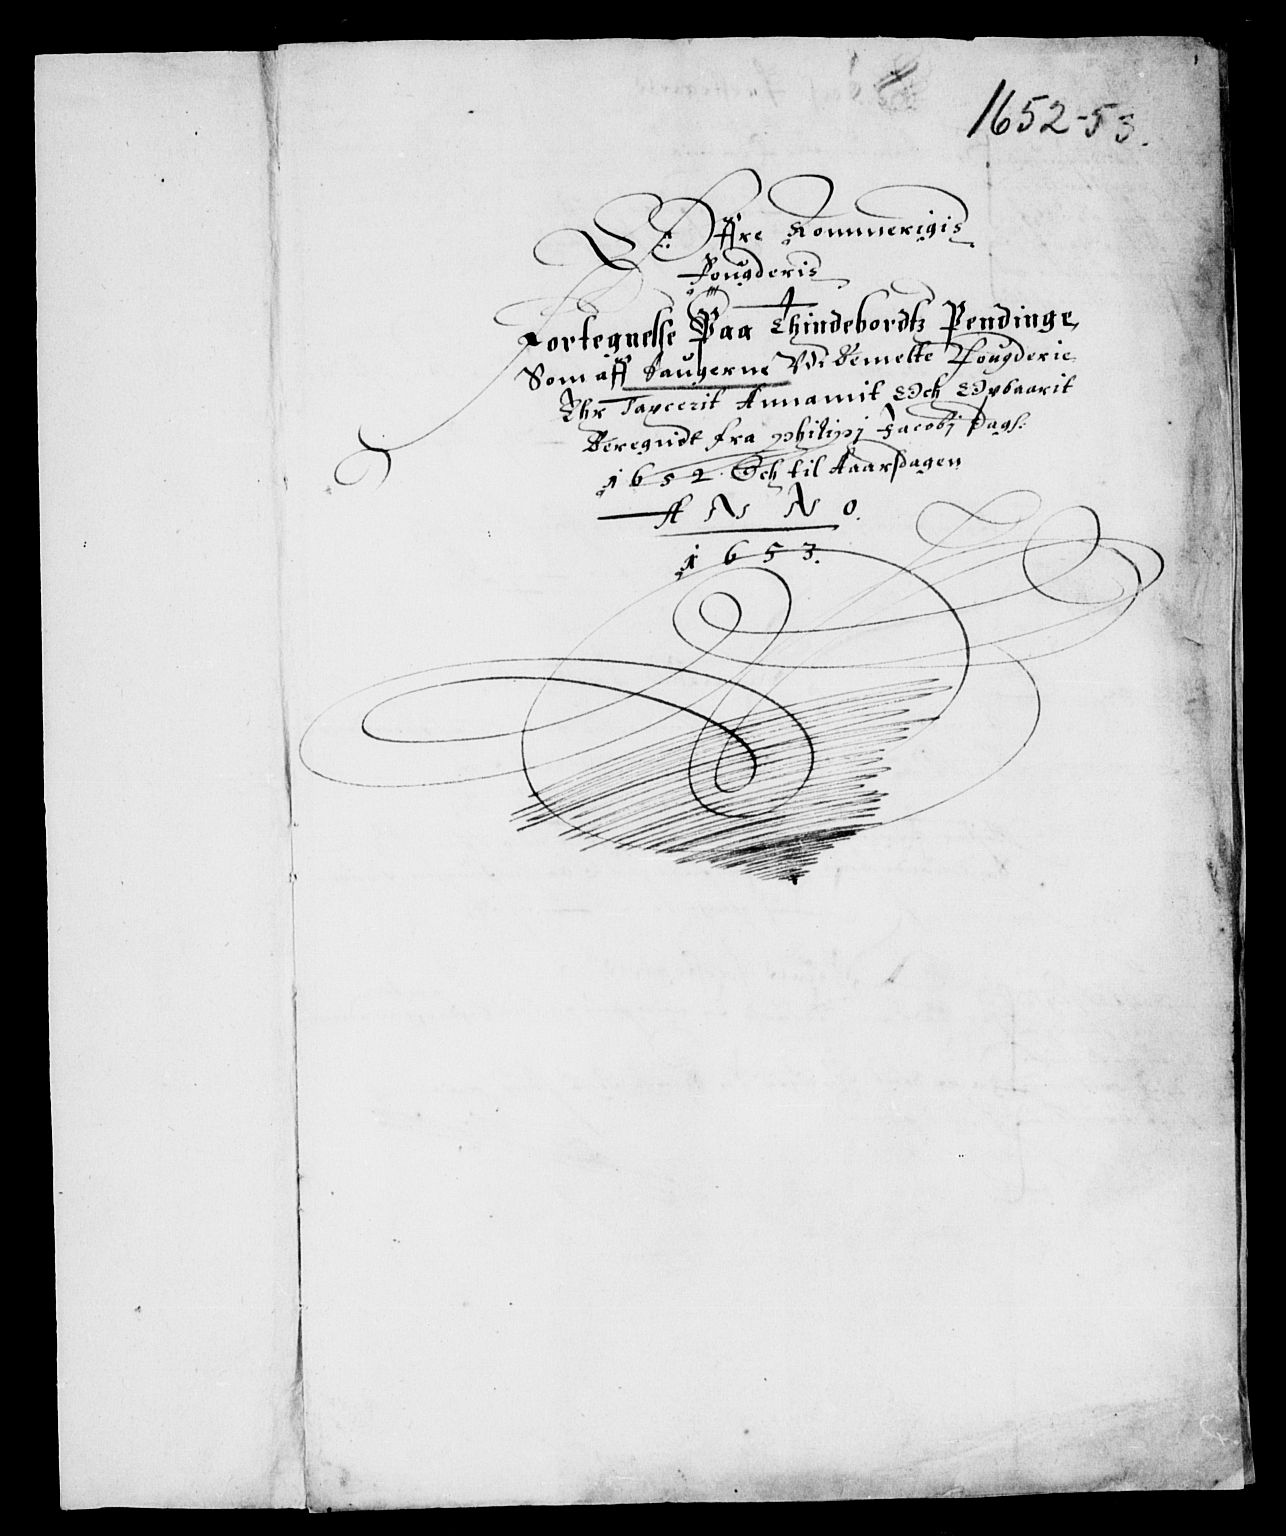 1652-53.
Øffre Rommerigis
Fougderie
Fortegnelse Paa Thindebordtz Pendinge,
Som aff Saugerne Vdi Bemelte Fougderie
Ehr Taxcerit Annamit Och Opbaarit
Beregnidt fra Philipi Jacobi Dags:
1652. Och til Aarsdagen
ANNO.
1653.